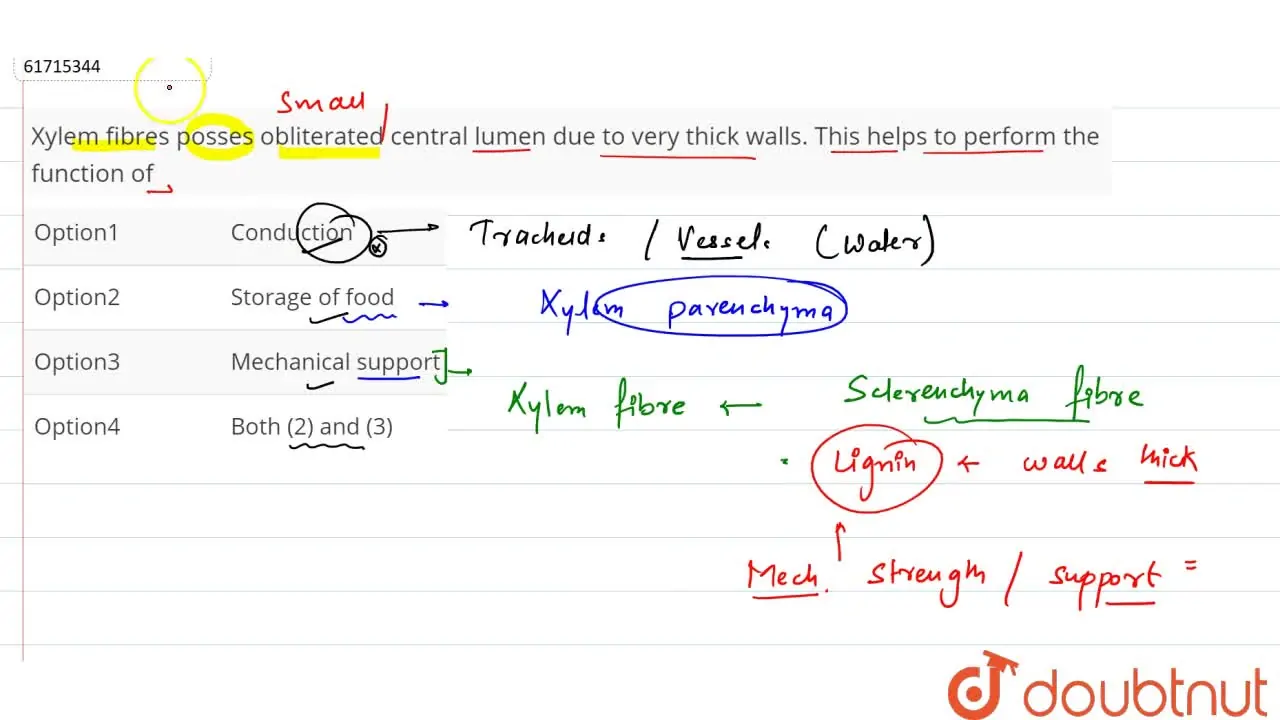 61715344
small
Xylem fibres posses obliterated central lumen due to very thick walls. This helps to perform the
function of
Option1 Conduction → Tracheids / Vessels (Water)
Option2 Storage of food → Xylem parenchyma
Option3 Mechanical support → Xylem fibre ← Sclerenchyma fibre
Option4 Both (2) and (3)
Lignin ← walls thick
Mech. strength / support =
doubtnut